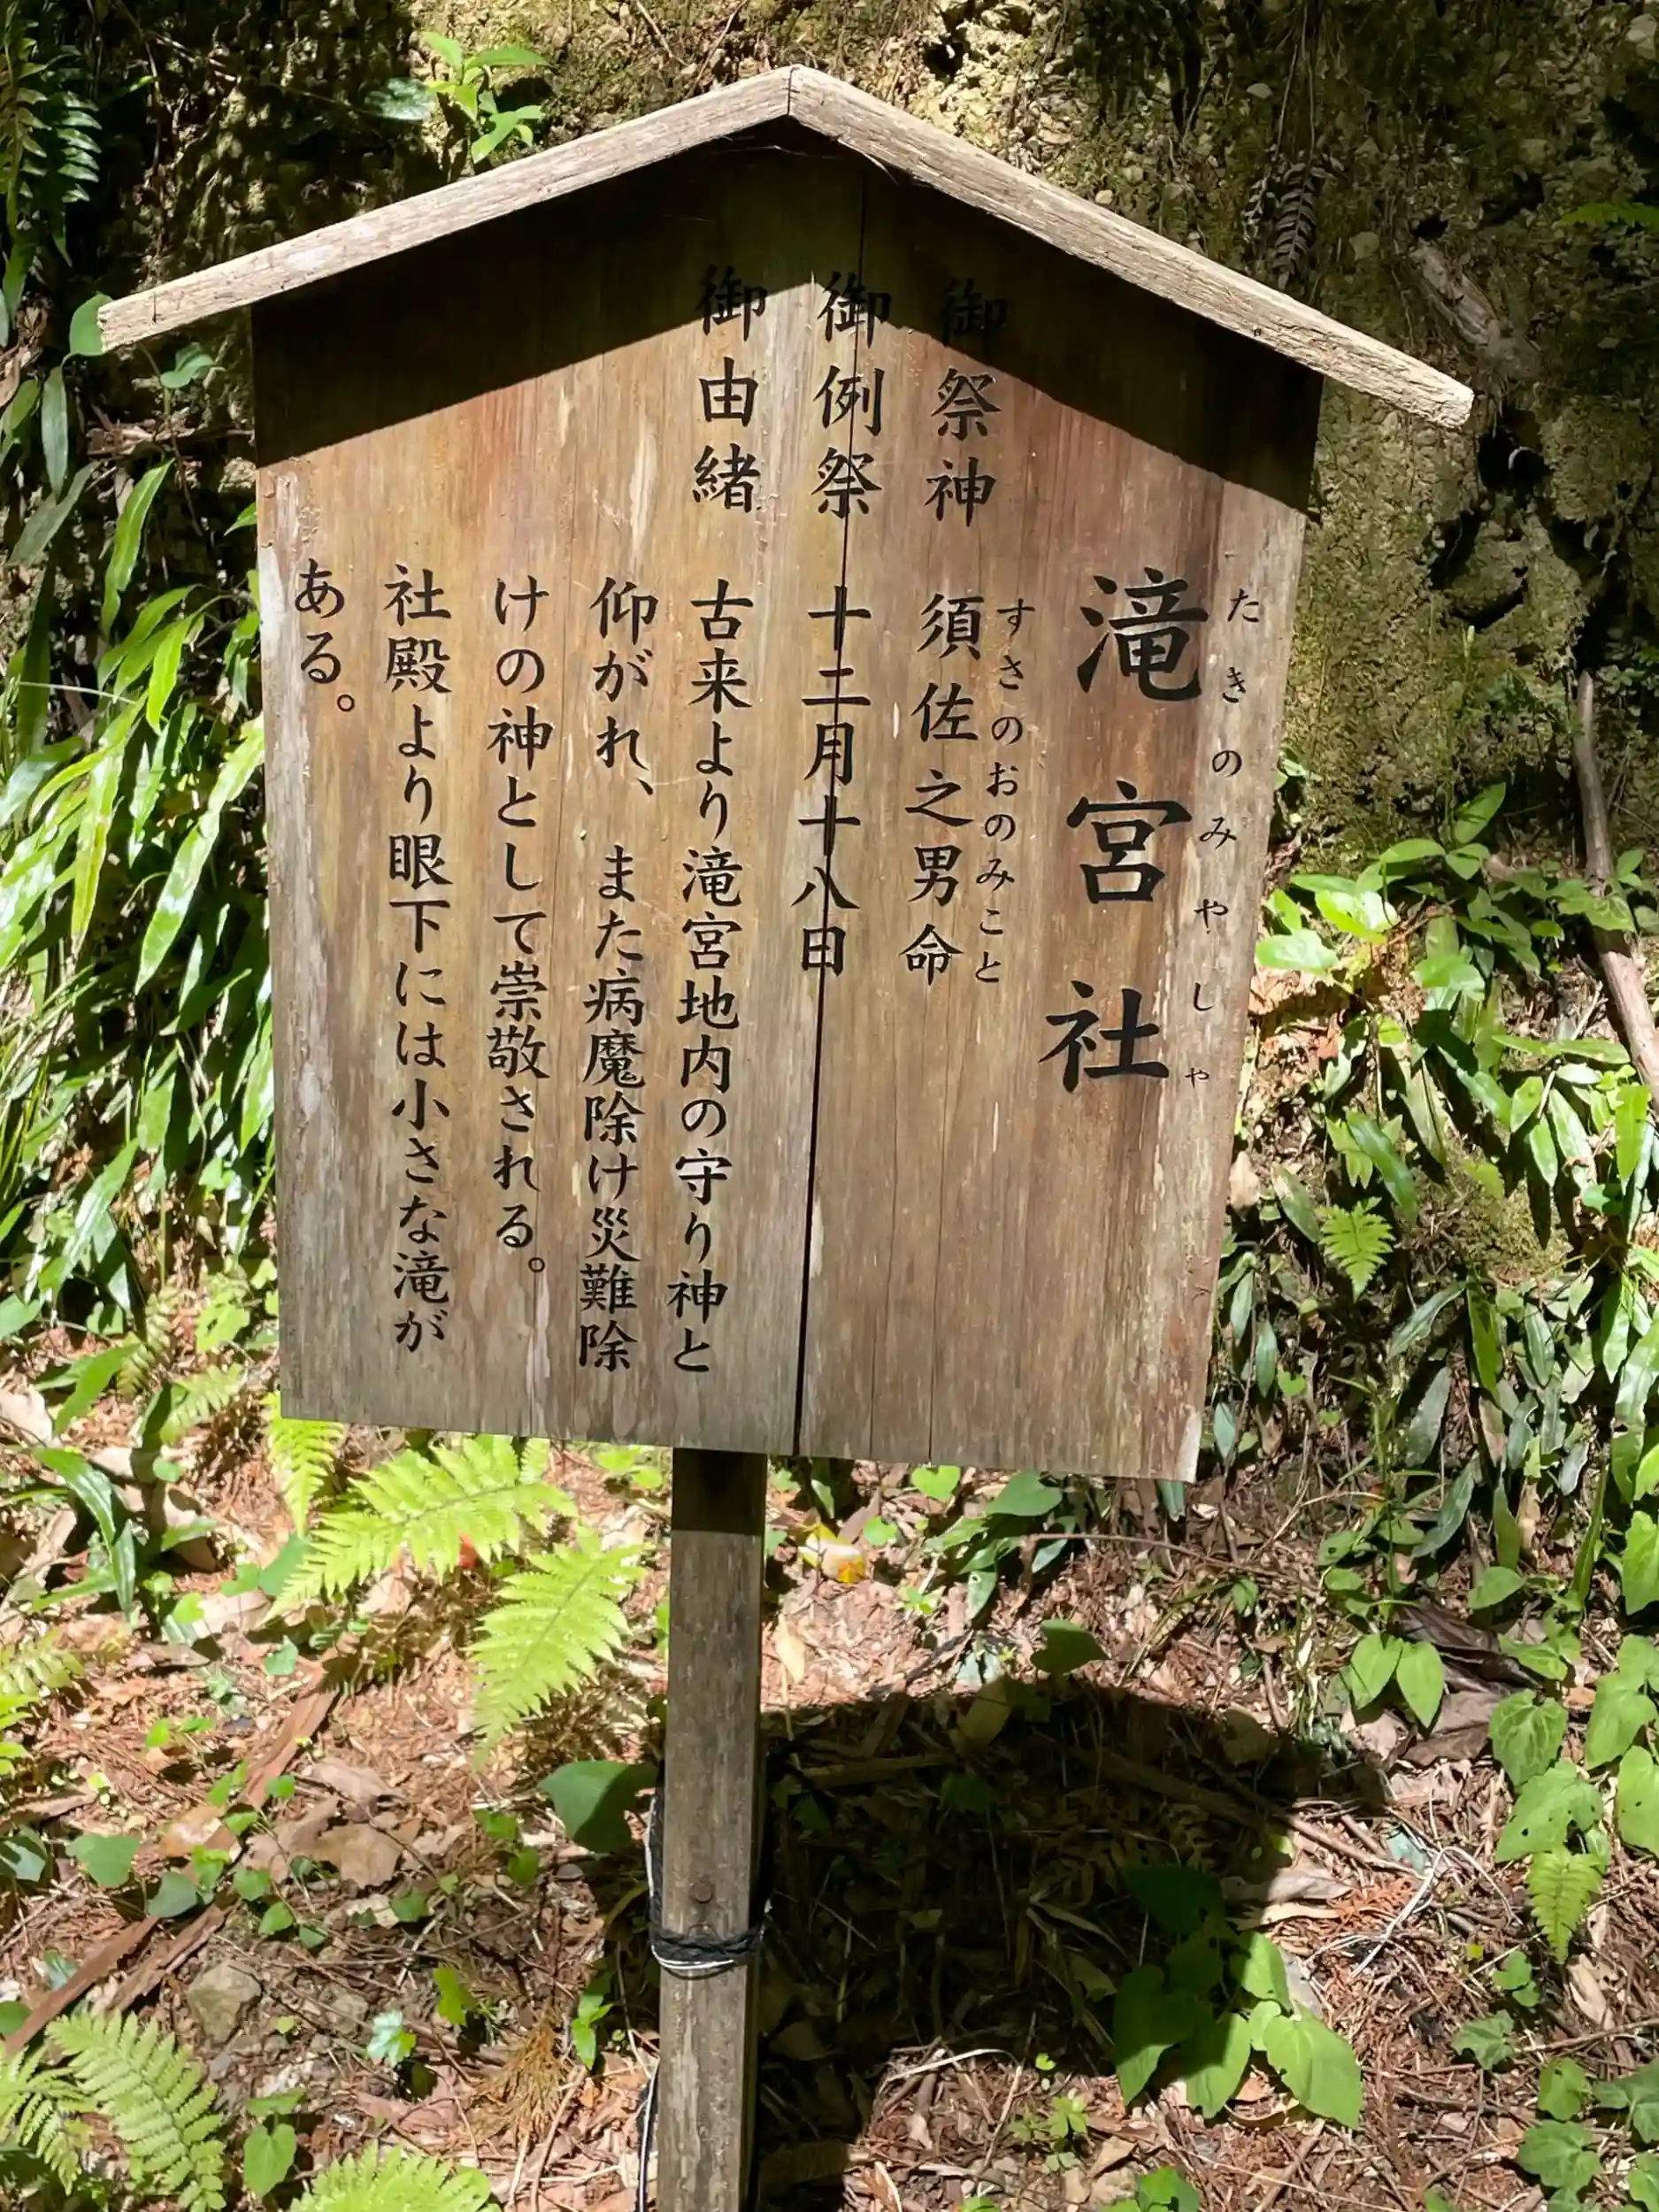 たきのみやしゃ
滝宮社
すさのおのみこと
御祭神 須佐之男命
御例祭 十二月十八日
御由緒 古来より滝宮地内の守り神と
仰がれ、また病魔除け災難除
けの神として崇敬される。
社殿より眼下には小さな滝が
ある。